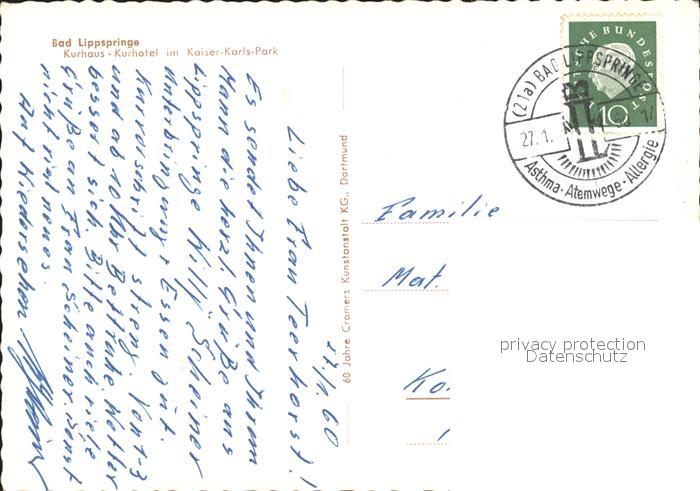 Bad Lippspringe
Kurhaus - Kurhotel im Kaiser-Karls-Park
27.1.60
Liebe Frau Teerhorst!
Es sendet Ihnen und Ihrem
Mann die herzl. Grüße aus
Lippspringe Willy Scheiner
Unterbringung + Essen gut.
Kurvorschrift streng. Von 1-3
und ab 10 Uhr Bettruhe. Wetter
bessert sich. Bitte auch viele
Grüße an Frau Scheiner. Sonst
nicht viel neues
Auf Wiedersehen
60 Jahre Cramers Kunstanstalt KG., Dortmund
DEUTSCHE BUNDESPOST
10
(21a) BAD LIPPSPRINGE
27.1.
Asthma · Atemwege · Allergie
Familie
Mat.
Ko.
privacy protection
Datenschutz